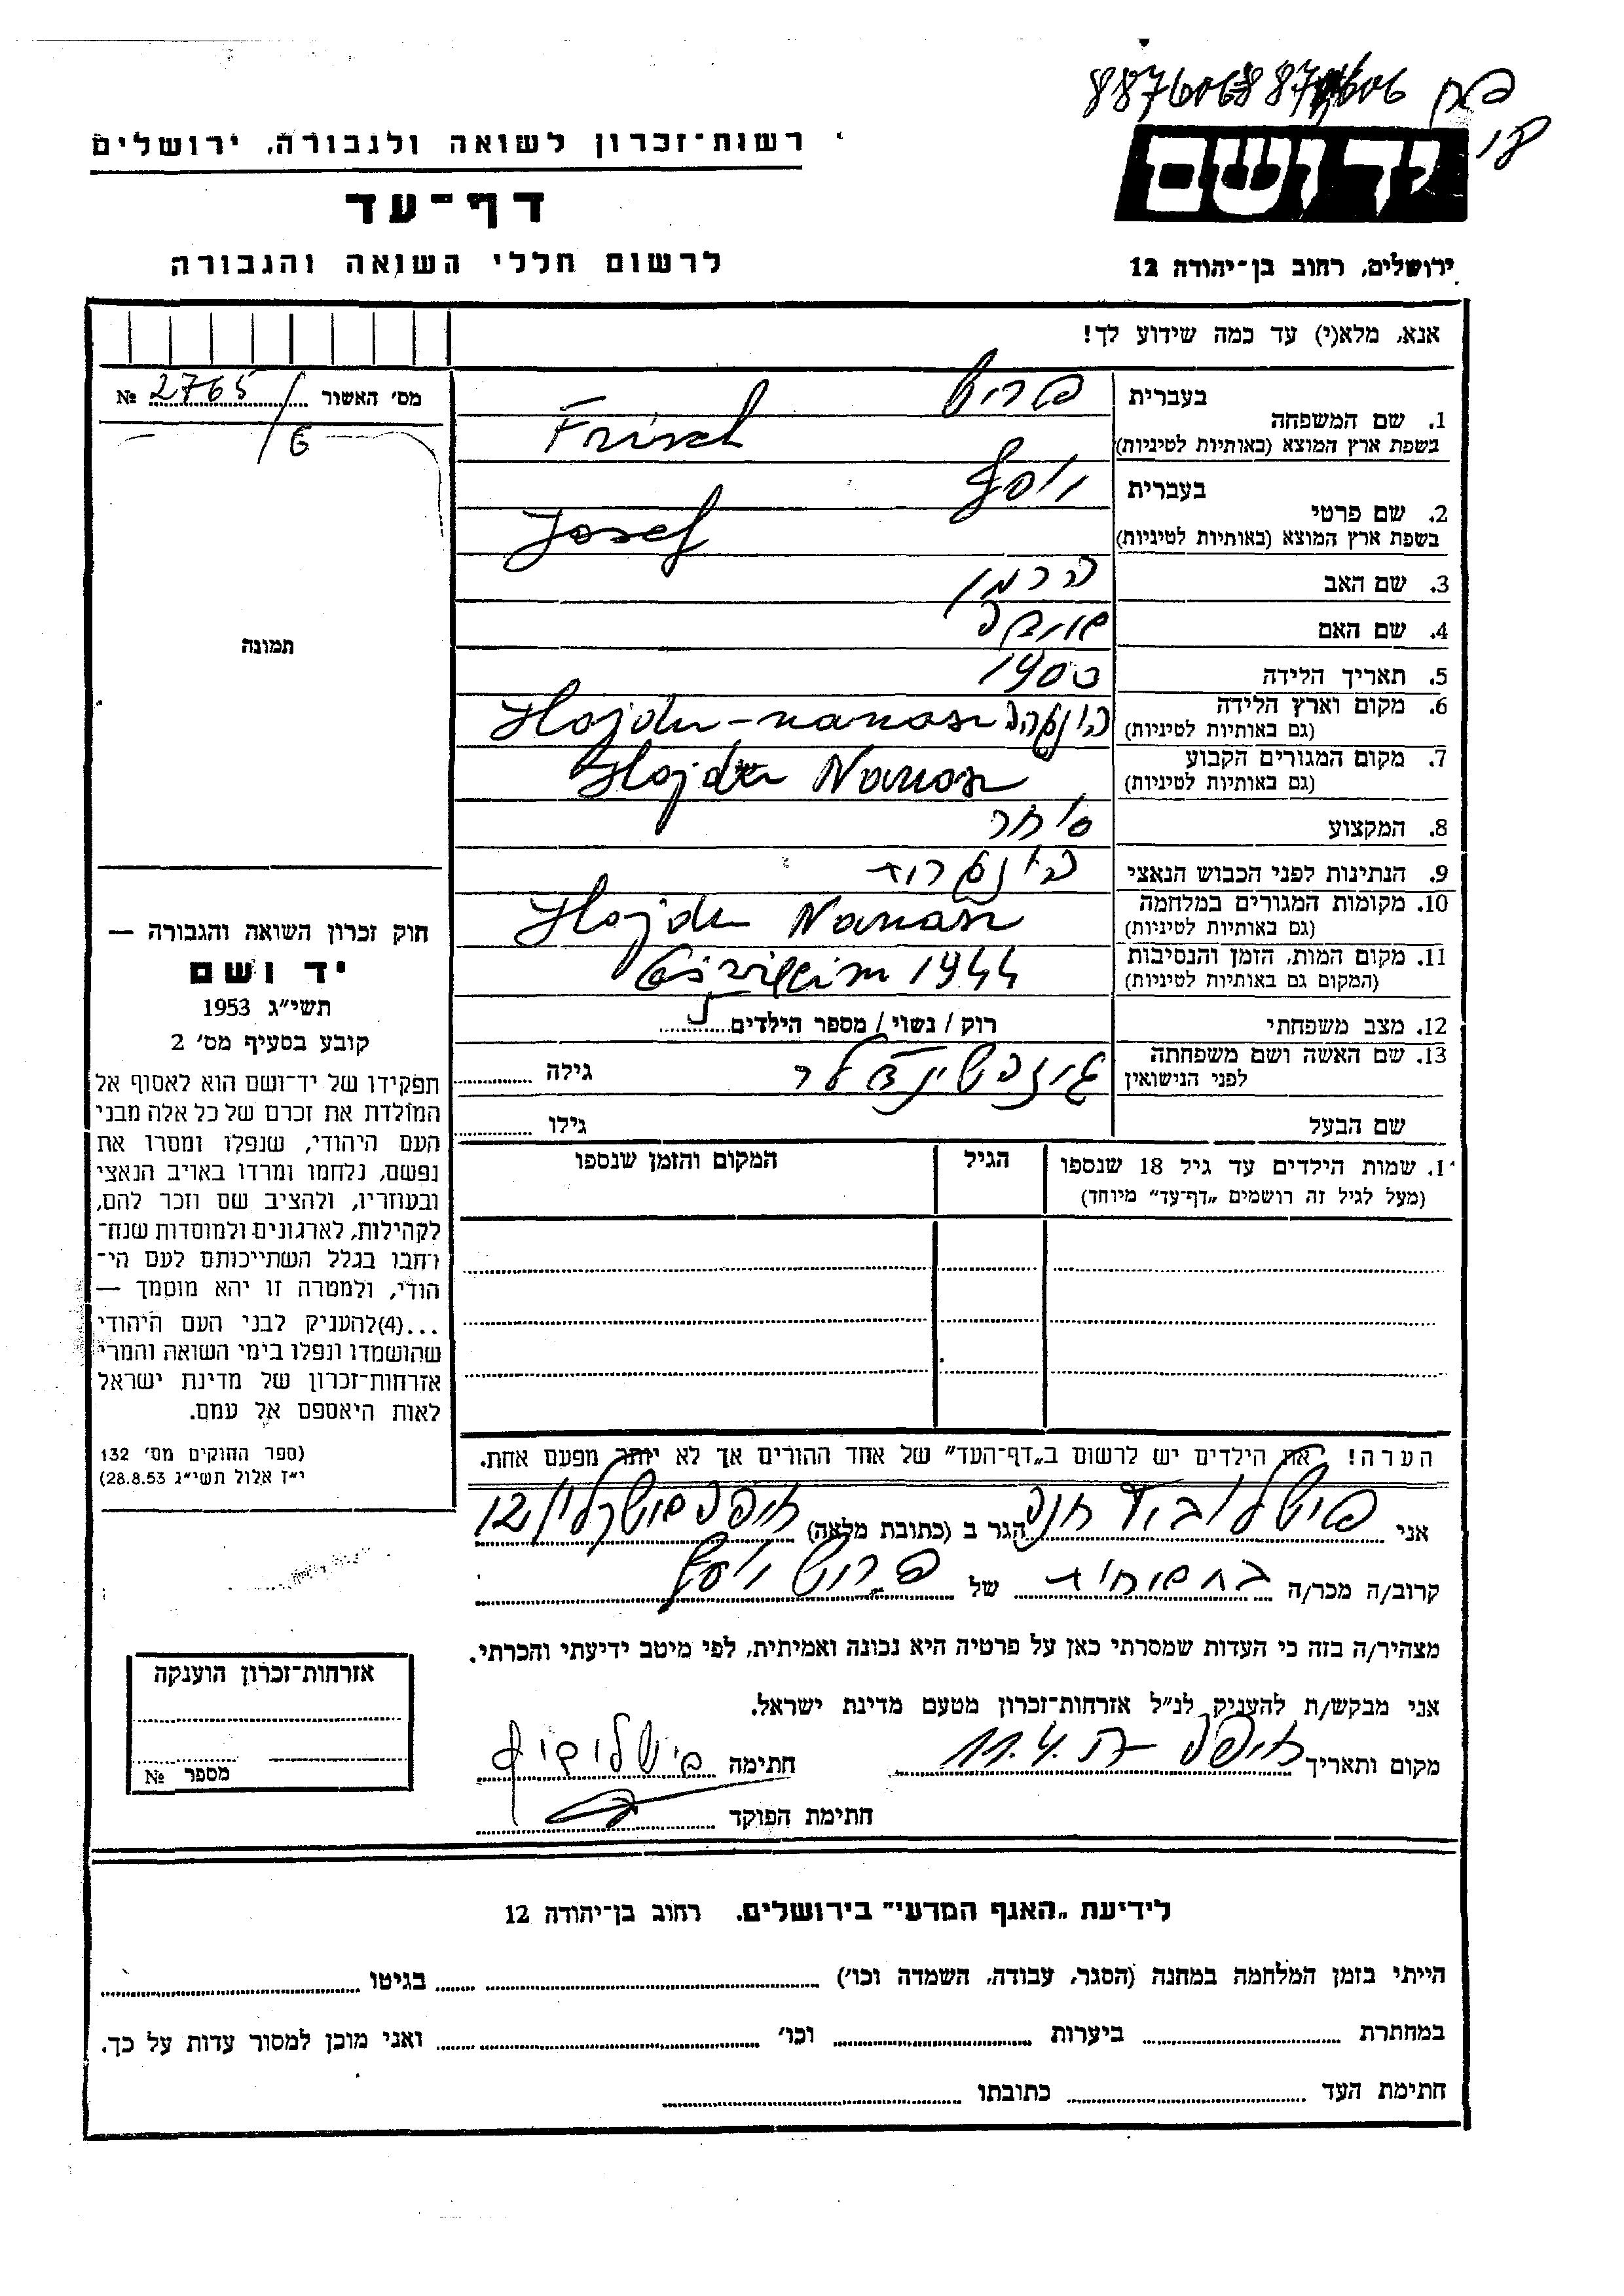 8876068876606
רשות־זכרון לשואה ולגבורה, ירושלים
יד ושם
דף־עד
לרשום חללי השואה והגבורה
ירושלים, רחוב בן־יהודה 12
אנא, מלא(י) עד כמה שידוע לך!
מס' האשור 2765 №
6
1. שם המשפחה
בעברית פריש
בשפת ארץ המוצא (באותיות לטיניות) Frisch
2. שם פרטי
בעברית יוסף
בשפת ארץ המוצא (באותיות לטיניות) Josef
3. שם האב הרמן
4. שם האם
5. תאריך הלידה 1900
6. מקום וארץ הלידה
(גם באותיות לטיניות) Hajdu-nanasz
7. מקום המגורים הקבוע
(גם באותיות לטיניות) Hajdu Nanasz
8. המקצוע סוחר
9. הנתינות לפני הכבוש הנאצי
10. מקומות המגורים במלחמה
(גם באותיות לטיניות) Hajdu Nanasz
11. מקום המות, הזמן והנסיבות
(המקום גם באותיות לטיניות) 1944
12. מצב משפחתי רוק / נשוי / מספר הילדים 5
13. שם האשה ושם משפחתה
לפני הנישואין גילה
שם הבעל גילו
1. שמות הילדים עד גיל 18 שנספו
(מעל לגיל זה רושמים „דף־עד” מיוחד)
הגיל
המקום והזמן שנספו
הערה! את הילדים יש לרשום ב„דף־העד” של אחד ההורים אך לא יותר מפעם אחת.
אני הגר ב (כתובת מלאה) חיפה 12
קרוב/ה מכר/ה של פריש יוסף
מצהיר/ה בזה כי העדות שמסרתי כאן על פרטיה היא נכונה ואמיתית, לפי מיטב ידיעתי והכרתי.
אני מבקש/ת להעניק לנ״ל אזרחות־זכרון מטעם מדינת ישראל.
מקום ותאריך חיפה 11.4. חתימה
חתימת הפוקד
תמונה
חוק זכרון השואה והגבורה —
יד ושם
תשי״ג 1953
קובע בסעיף מס' 2
תפקידו של יד־ושם הוא לאסוף אל
המולדת את זכרם של כל אלה מבני
העם היהודי, שנפלו ומסרו את
נפשם, נלחמו ומרדו באויב הנאצי
ובעוזריו, ולהציב שם וזכר להם,
לקהילות, לארגונים ולמוסדות שנח־
רחבו בגלל השתייכותם לעם הי־
הודי, ולמטרה זו יהא מוסמך —
...(4)להעניק לבני העם היהודי
שהושמדו ונפלו בימי השואה והמרי
אזרחות־זכרון של מדינת ישראל
לאות היאספם אל עמם.
(ספר החוקים מס' 132
י״ז אלול תשי״ג 28.8.53)
אזרחות־זכרון הוענקה
מספר №
לידיעת „האגף המדעי” בירושלים. רחוב בן־יהודה 12
הייתי בזמן המלחמה במחנה (הסגר, עבודה, השמדה וכו') בגיטו
במחתרת ביערות וכו' ואני מוכן למסור עדות על כך.
חתימת העד כתובתו